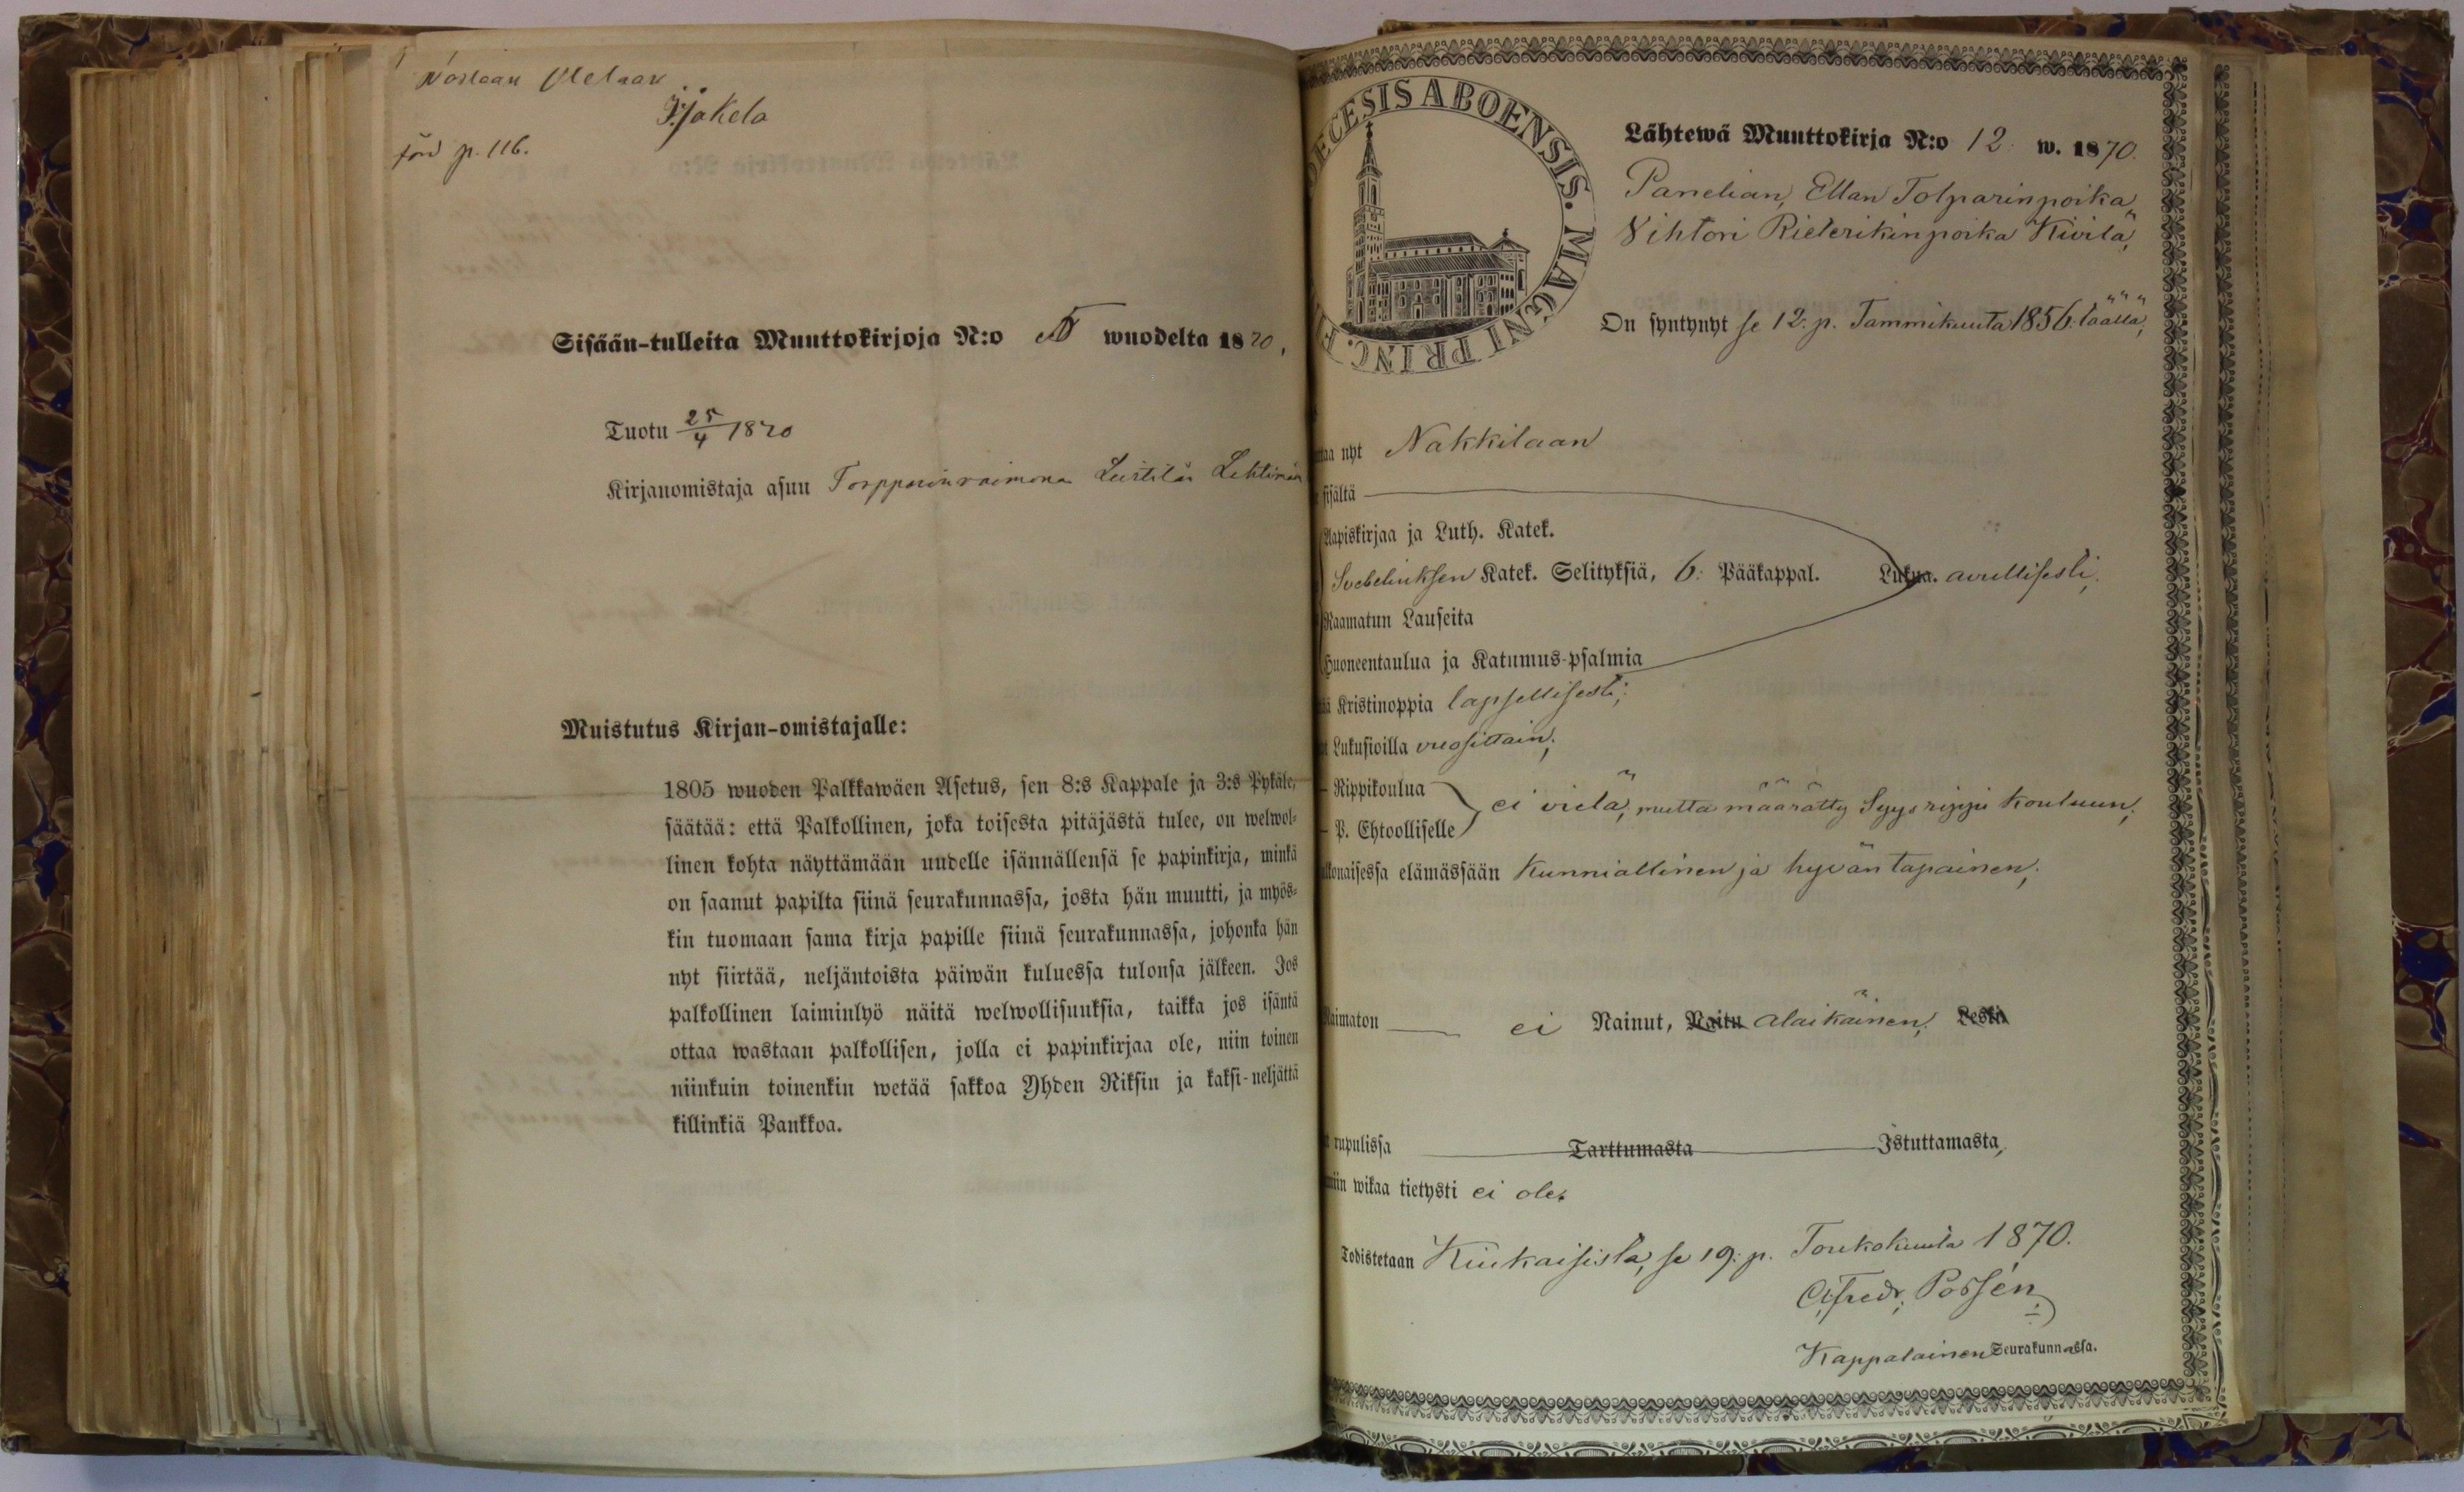 förd p. 116.
Sisään-tulleita Muuttokirjoja N:o wuodelta 1870,
Tuotu 25/4 1870
Kirjanomistaja asuu Torpparinvaimona Leistilän
Muistutus Kirjan-omistajalle:
1805 wuoden Palkkawäen Asetus, sen 8:s Kappale ja 3:s Pykäle,
säätää: että Palkollinen, joka toisesta pitäjästä tulee, on welwol-
linen kohta näyttämään uudelle isännällensä se papinkirja, minkä
on saanut papilta siinä seurakunnassa, josta hän muutti, ja myös-
kin tuomaan sama kirja papille siinä seurakunnassa, johonka hän
nyt siirtää, neljäntoista päiwän kuluessa tulonsa jälkeen. Jos
palkollinen laiminlyö näitä welwollisuuksia, taikka jos isäntä
ottaa wastaan palkollisen, jolla ei papinkirjaa ole, niin toinen
niinkuin toinenkin wetää sakkoa Yhden Riksin ja kaksi-neljättä
killinkiä Pankkoa.
ECESIS ABOENSIS. MAGNI PRINC. F
Lähtewä Muuttokirja N:o 12. w. 1870.
Panelian, Ellan Tolparinpoika,
Vihtori Rieterikinpoika Kivilä,
On syntynyt se 12. p. Tammikuuta 1856. täällä,
taa nyt Nakkilaan
sisältä
Aapiskirjaa ja Luth. Katek.
Svebeliuksen Katek. Selityksiä, 6: Pääkappal. Lukua. avullisesti,
Raamatun Lauseita
Huoneentaulua ja Katumus-psalmia
Kristinoppia lapsellisesti;
Lukusioilla vuosittain;
Rippikoulua
ei vielä, mutta määrätty Syysrippi kouluun;
P. Ehtoolliselle
lkonaisessa elämässään Kunniallinen ja hyväntapainen;
Naimaton ei Nainut, Naitu alaikäinen, Leski
rupulissa Tarttumasta Istuttamasta,
niin wikaa tietysti ei ole.
Todistetaan Kiukaisista, se 19. p. Toukokuuta 1870.
Alfredr. Possén
Kappalainen Seurakunnassa.